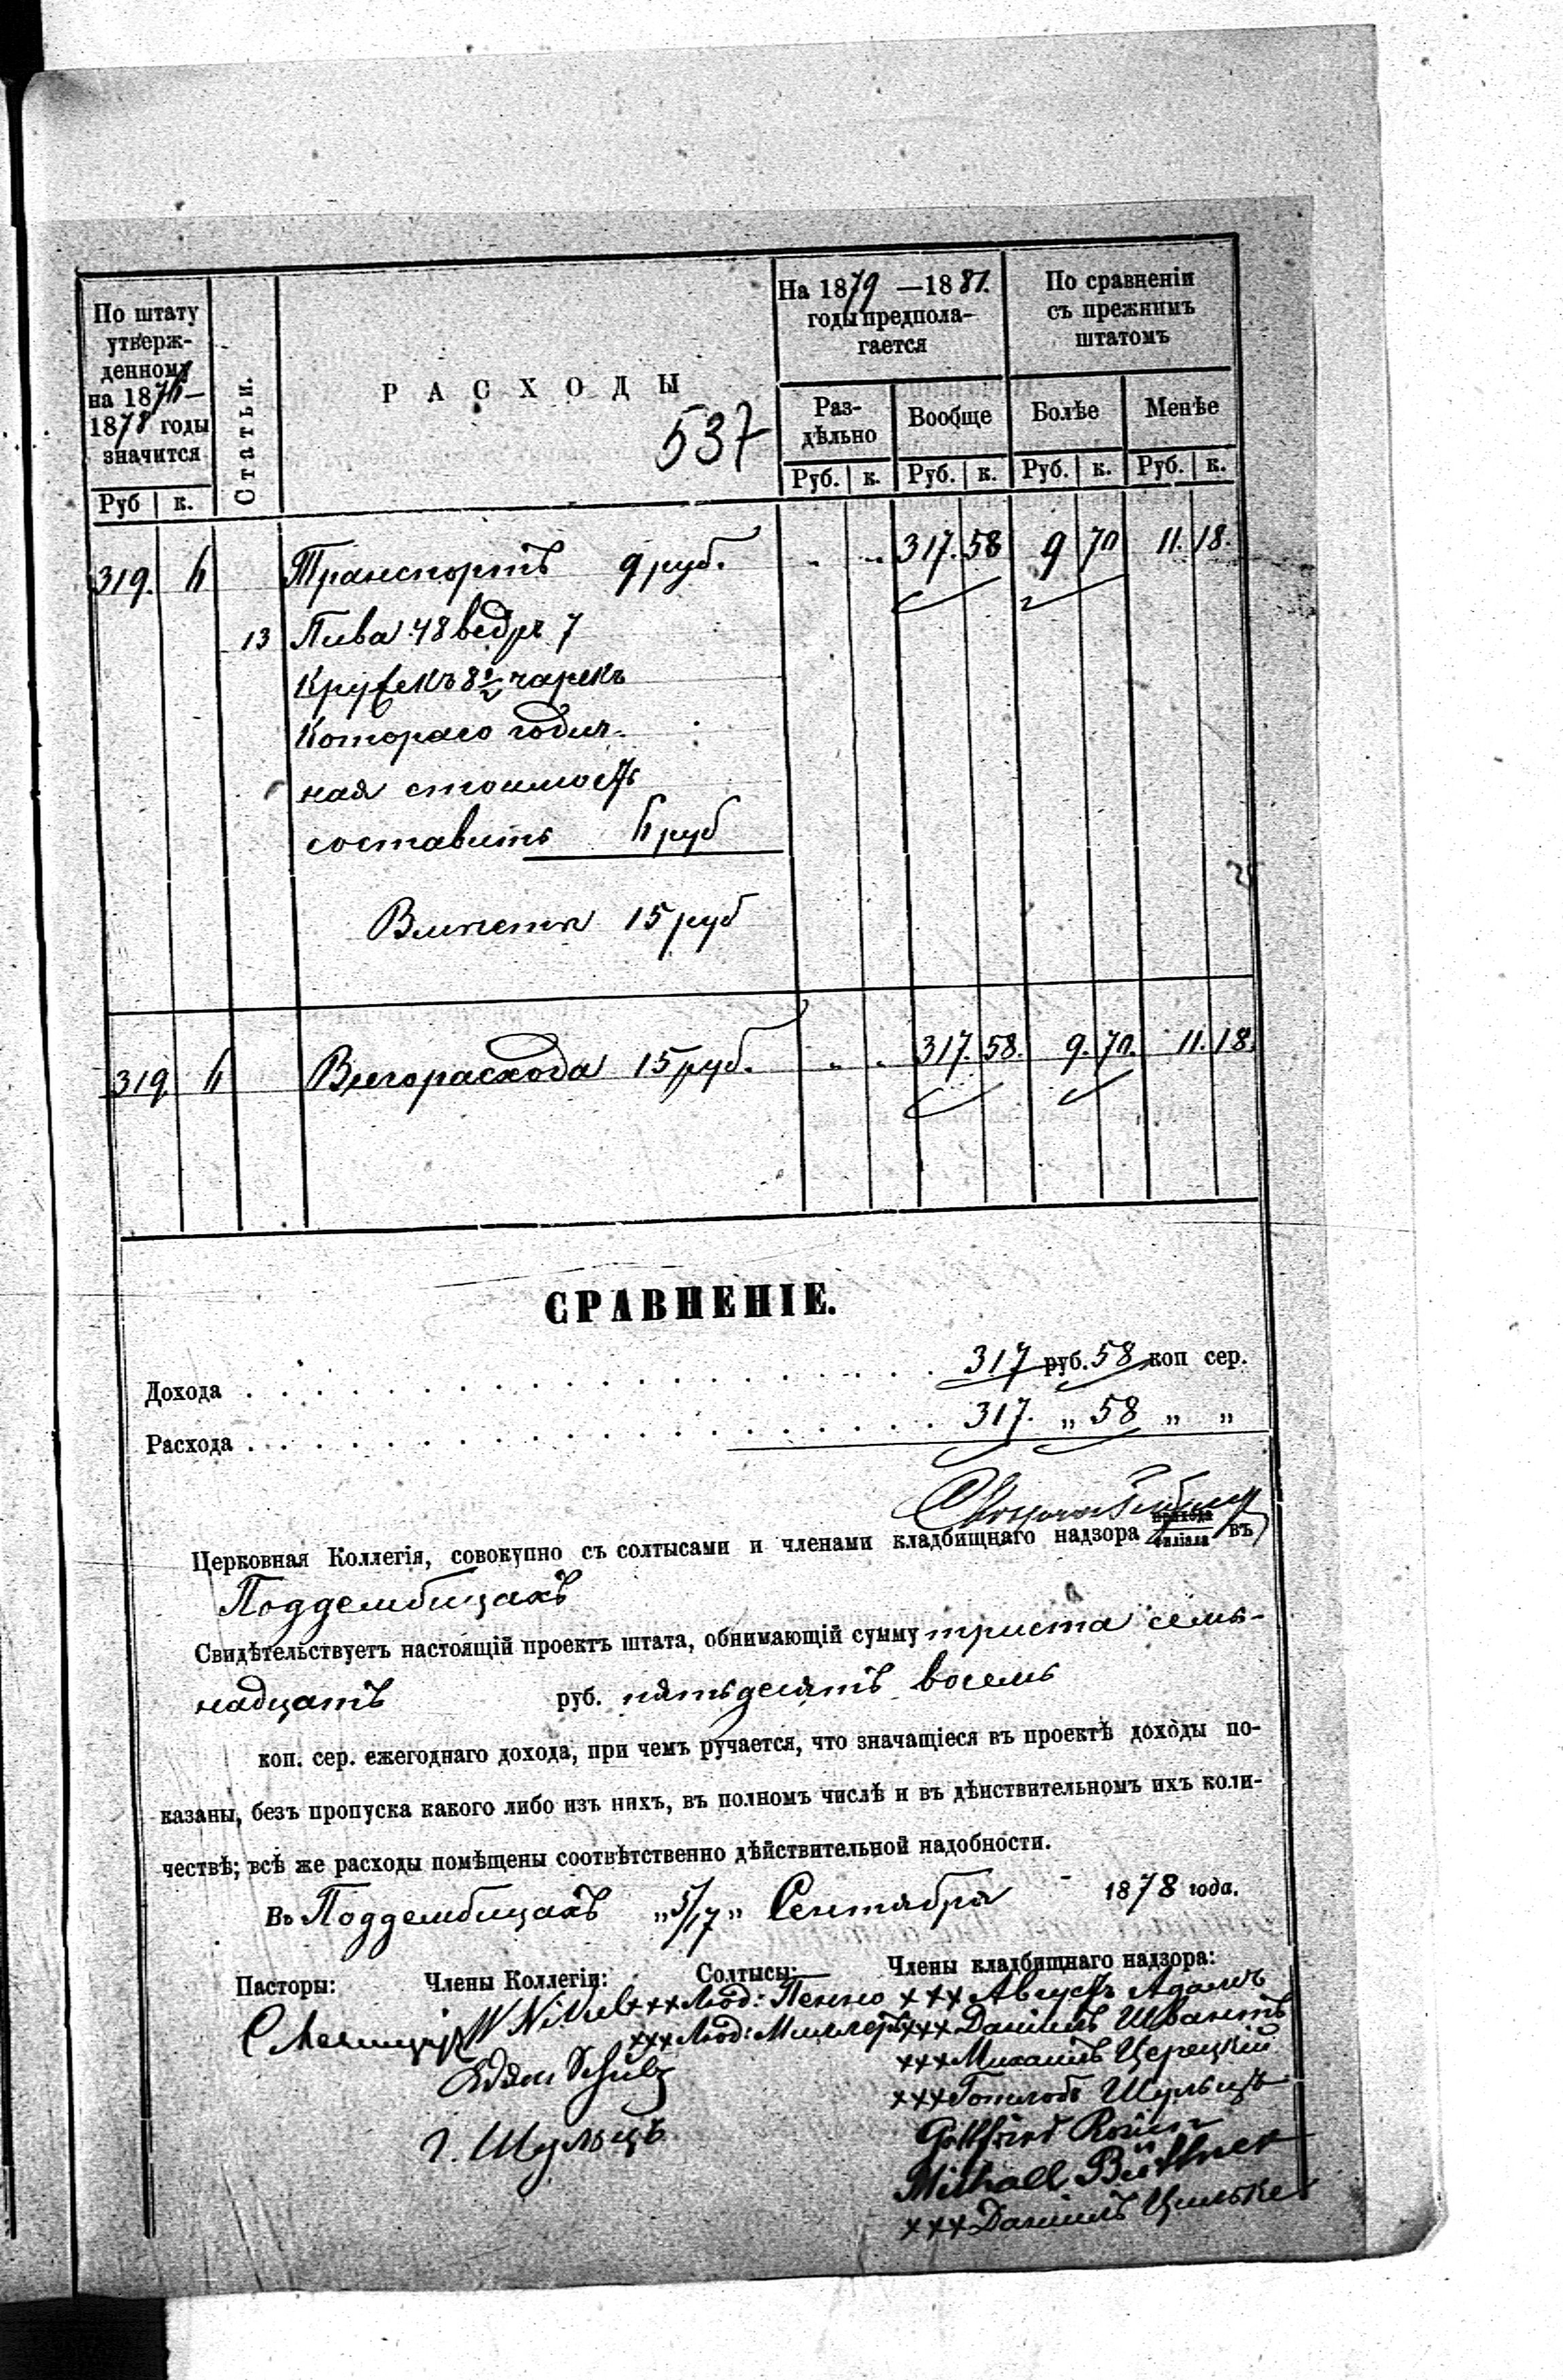 По штату
утверж-
денному
на 1876—
1878 годы
значится
Руб к.
Статьи.
РАСХОДЫ
537
На 1879 —1881.
годы предпола-
гается
Раз-
дѣльно
Руб. к.
Вообще
Руб. к.
По сравненіи
съ прежнимъ
штатомъ
Болѣе
Руб. к.
Менѣе
Руб. к.
319. 6 Транспортъ 9 руб. " " 317. 58 9 70 11. 18.
13 Пива 48 ведръ 7
Кружекъ 8 чарекъ
Котораго годич-
ная стоимость
составитъ 6 руб
Вмѣстѣ 15 руб
319. 6 Всего расхода 15 руб. " " 317. 58. 9. 70. 11. 18.
СРАВНЕНІЕ.
Дохода . . . 317 руб. 58 коп сер.
Расхода . . . 317. „ 58 „ „
Церковная Коллегія, совокупно съ солтысами и членами кладбищнаго надзора прихода филіала въ
Поддембицахъ
Свидѣтельствуетъ настоящій проектъ штата, обнимающій сумму триста семь-
надцать руб. пятьдесятъ восемь
коп. сер. ежегоднаго дохода, при чемъ ручается, что значащіеся въ проектѣ доходы по-
казаны, безъ пропуска какого либо изъ нихъ, въ полномъ числѣ и въ дѣйствительномъ ихъ коли-
чествѣ; всѣ же расходы помѣщены соотвѣтственно дѣйствительной надобности.
Въ Поддембицахъ „5/17„ Сентября 1878 года.
Пасторы: Члены Коллегіи: Солтысы: Члены кладбищнаго надзора:
+++ Люд: Пенно +++ Августъ Адамъ
+++ Люд: Миллеръ +++ Даніилъ Швантъ
Schulz +++ Михаилъ Церецкій
+++ Готлобъ Шульцъ
Г. Шульцъ Gottfried
Michael Büttner
+++ Даніилъ Цильке